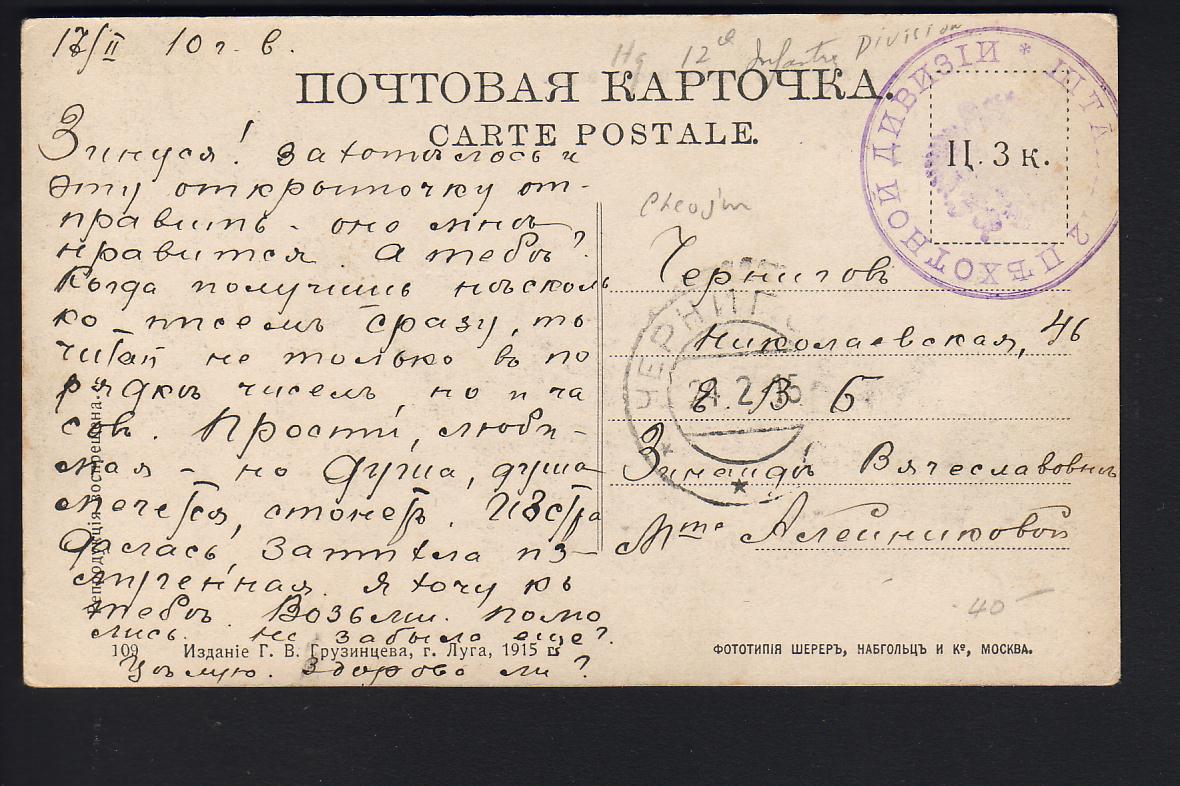 17/II 10 г. в.
Hq 12th Infantry Division
ПОЧТОВАЯ КАРТОЧКА.
CARTE POSTALE.
ШТА 2 ПѢХОТНОЙ ДИВИЗІИ *
Ц. 3 к.
Зинуся! Захотѣлось и
эту открыточку от-
править - оно мнѣ
нравится. А тебѣ?
Когда получишь нѣсколь
ко писемъ сразу, то
читай не только въ по
рядкѣ чиселъ, но и ча
совъ. Прости, люби-
мая - но душа, душа
мечется, стонетъ. Изстра
далась
измученная. Я хочу къ
тебѣ. Возьми. Помо
лись. Не забыла еще?
Цѣлую. Здорова ли?
Черниговъ
Николаевская, 46
Е. В. Б
Зинаидѣ Вячеславовнѣ
Mme Алейниковой
ЧЕРНИГ
24 2 15
40
Репродукція воспрещена.
109 Изданіе Г. В. Грузинцева, г. Луга, 1915 г.
ФОТОТИПІЯ ШЕРЕРЪ, НАБГОЛЬЦЪ И Кº, МОСКВА.